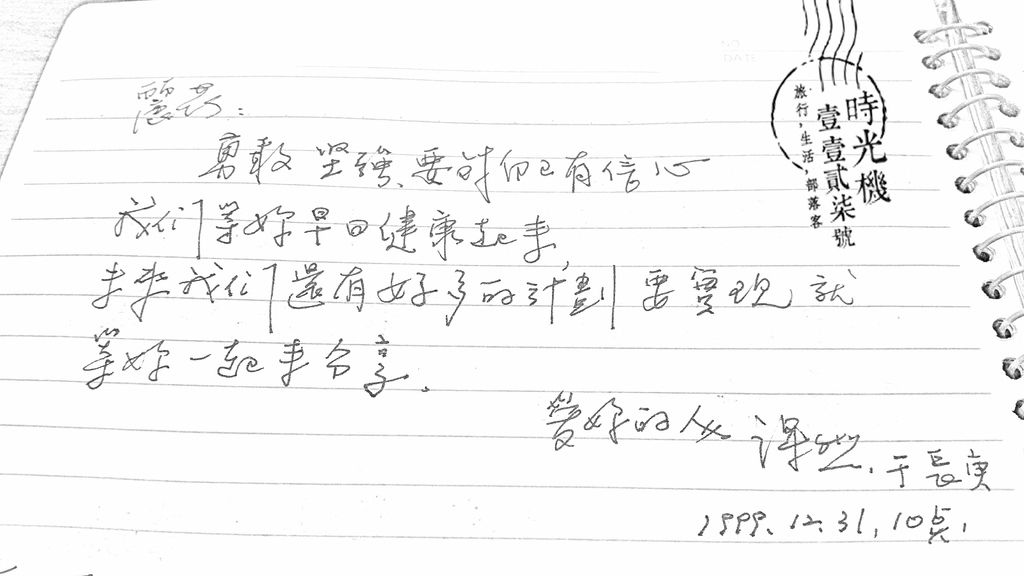 麗芬：
勇敢 坚強、要対自己有信心
我们等妳早日健康起来，
未來我们還有好多的計劃要實現 就
等妳一起来分享。
愛妳的人 課然，于長庚
1999.12.31,10点，
NO.
DATE
時光機
壹壹貳柒號
旅行，生活，部落客